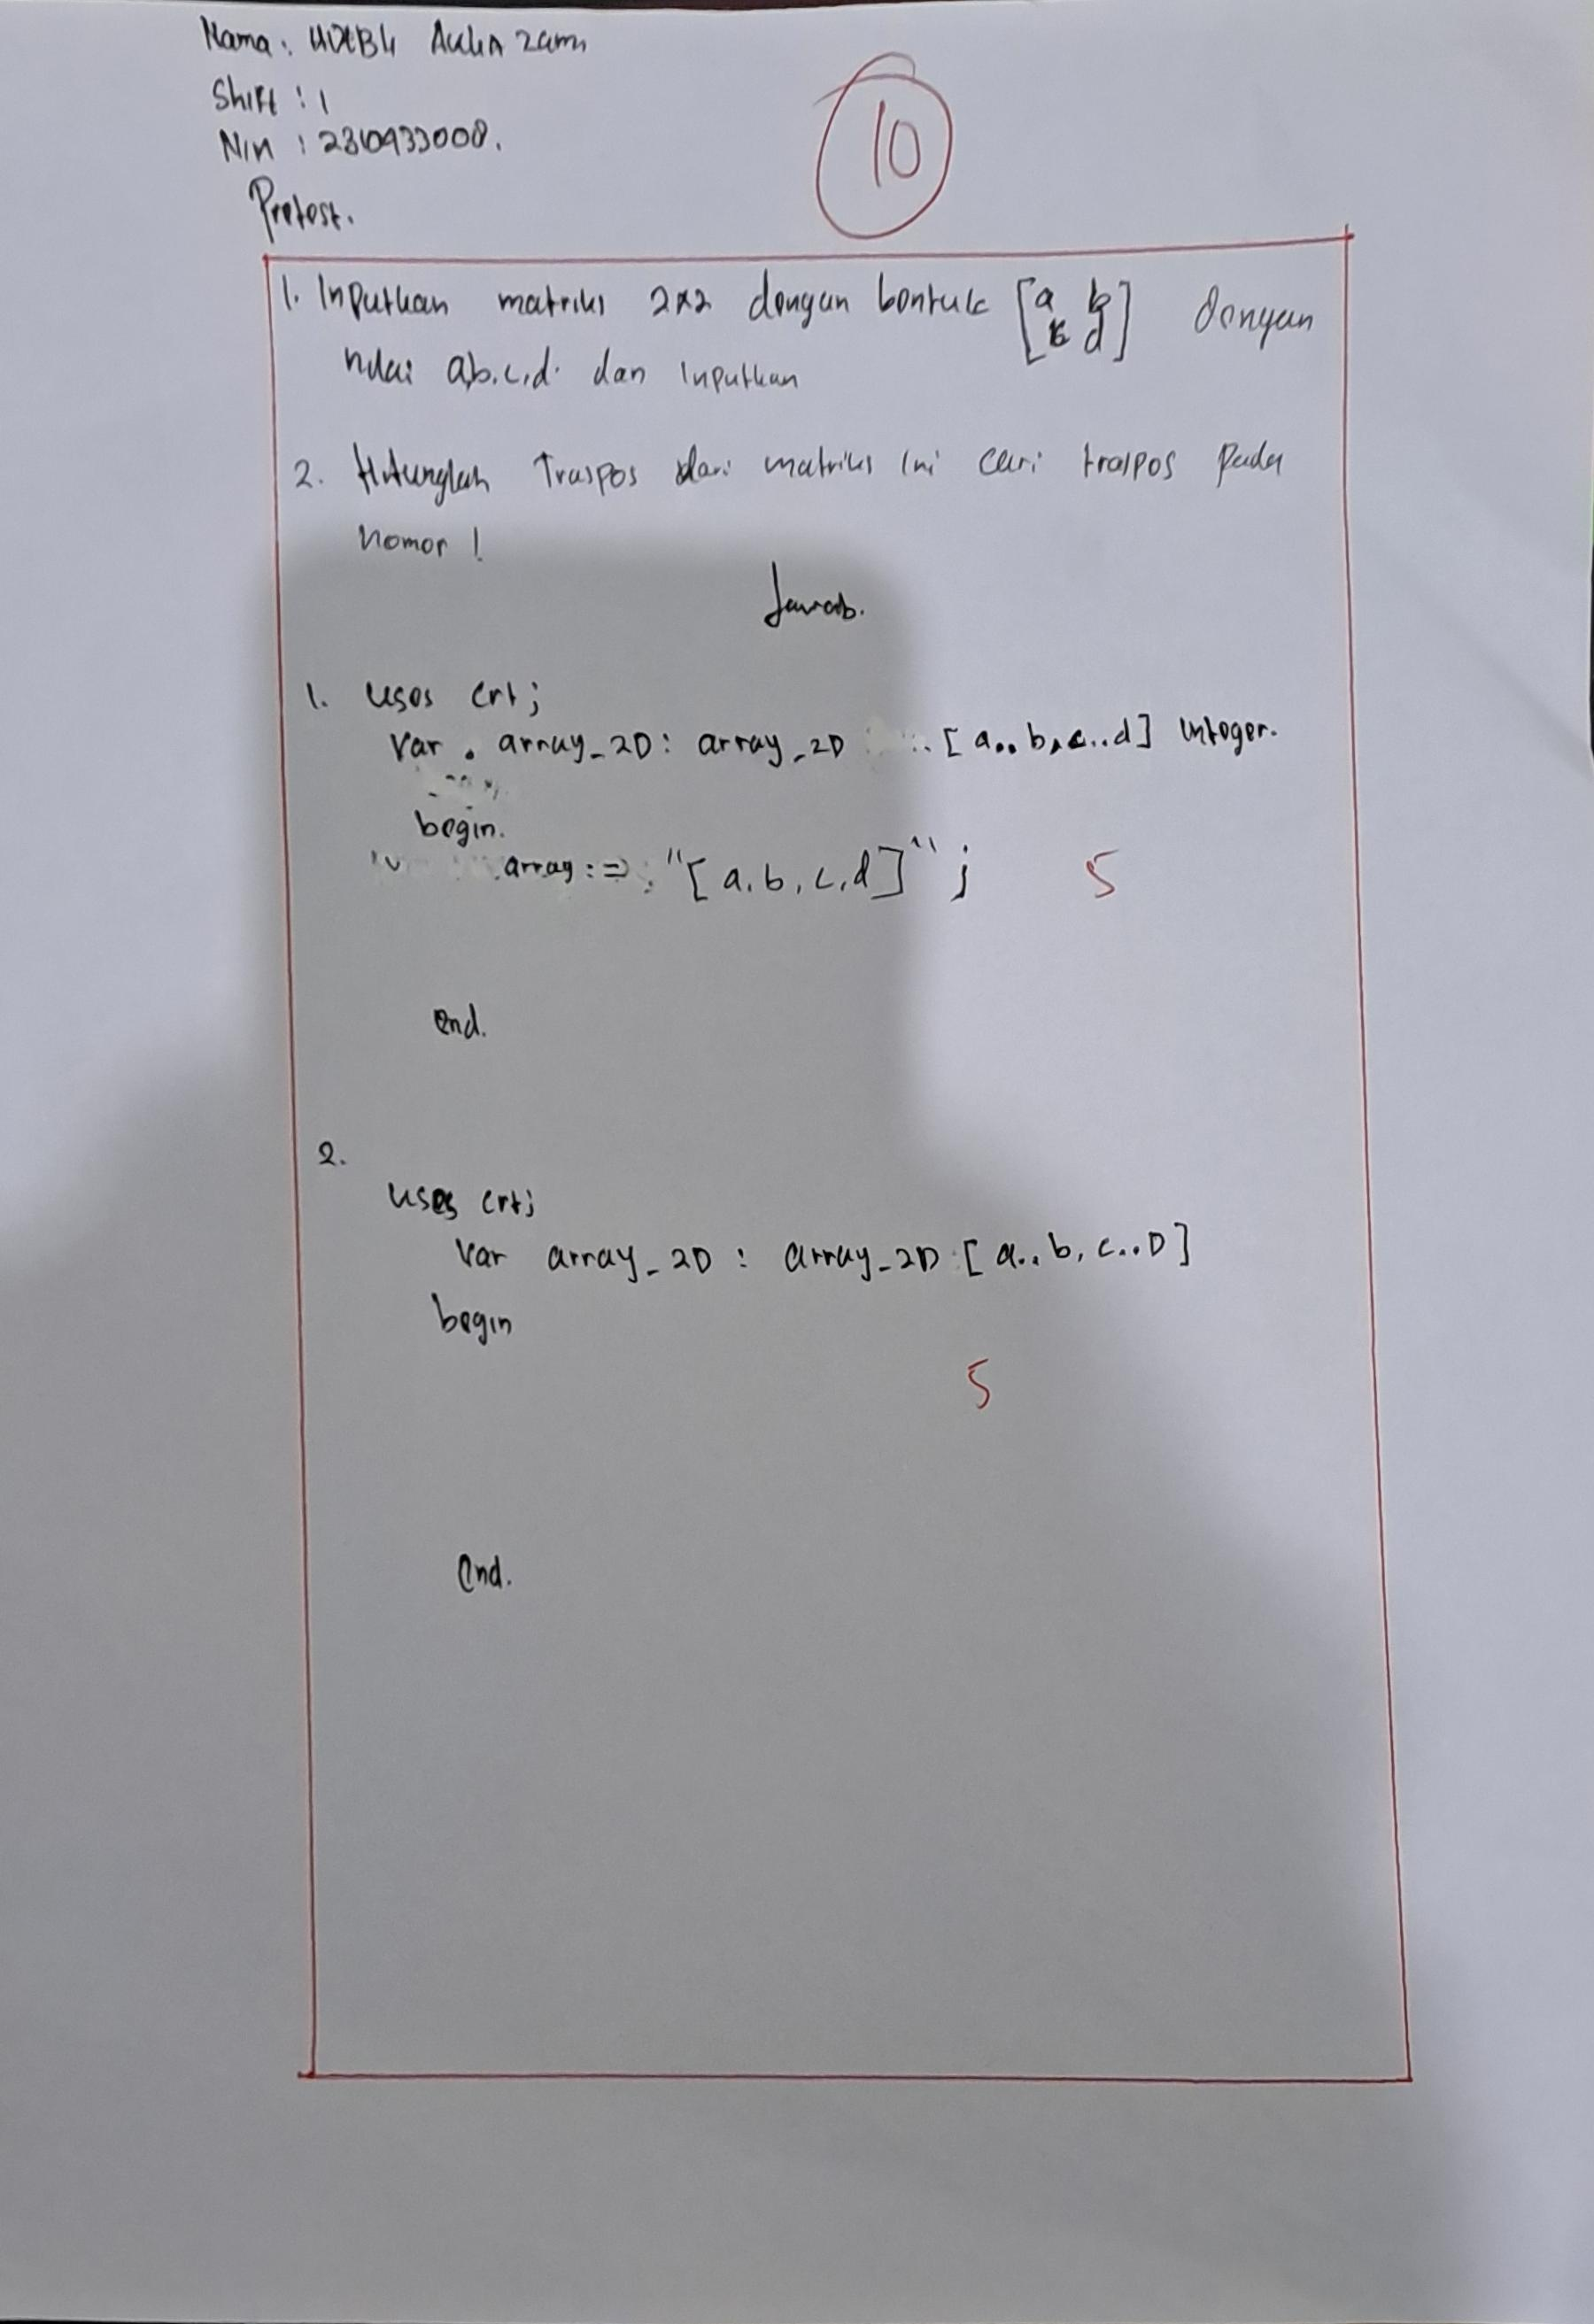 Nama : Aulia zami
Shift : 1
Nim :
Pretest.
10
1. Inputkan matriks 2x2 dengan bentuk [a b] dengan
c d
nilai a,b.c,d. dan Inputkan
2. Hitunglah Traspos dari matriks ini cari traspos pada
nomor 1
Jawab.
1. uses crt;
Var . array_2D: array_2D [a..b,c..d] integer.
begin.
array := "[a.b,c,d]" ;
5
end.
2.
uses crt;
Var array_2D : array_2D [a..b, c..D]
begin
5
end.